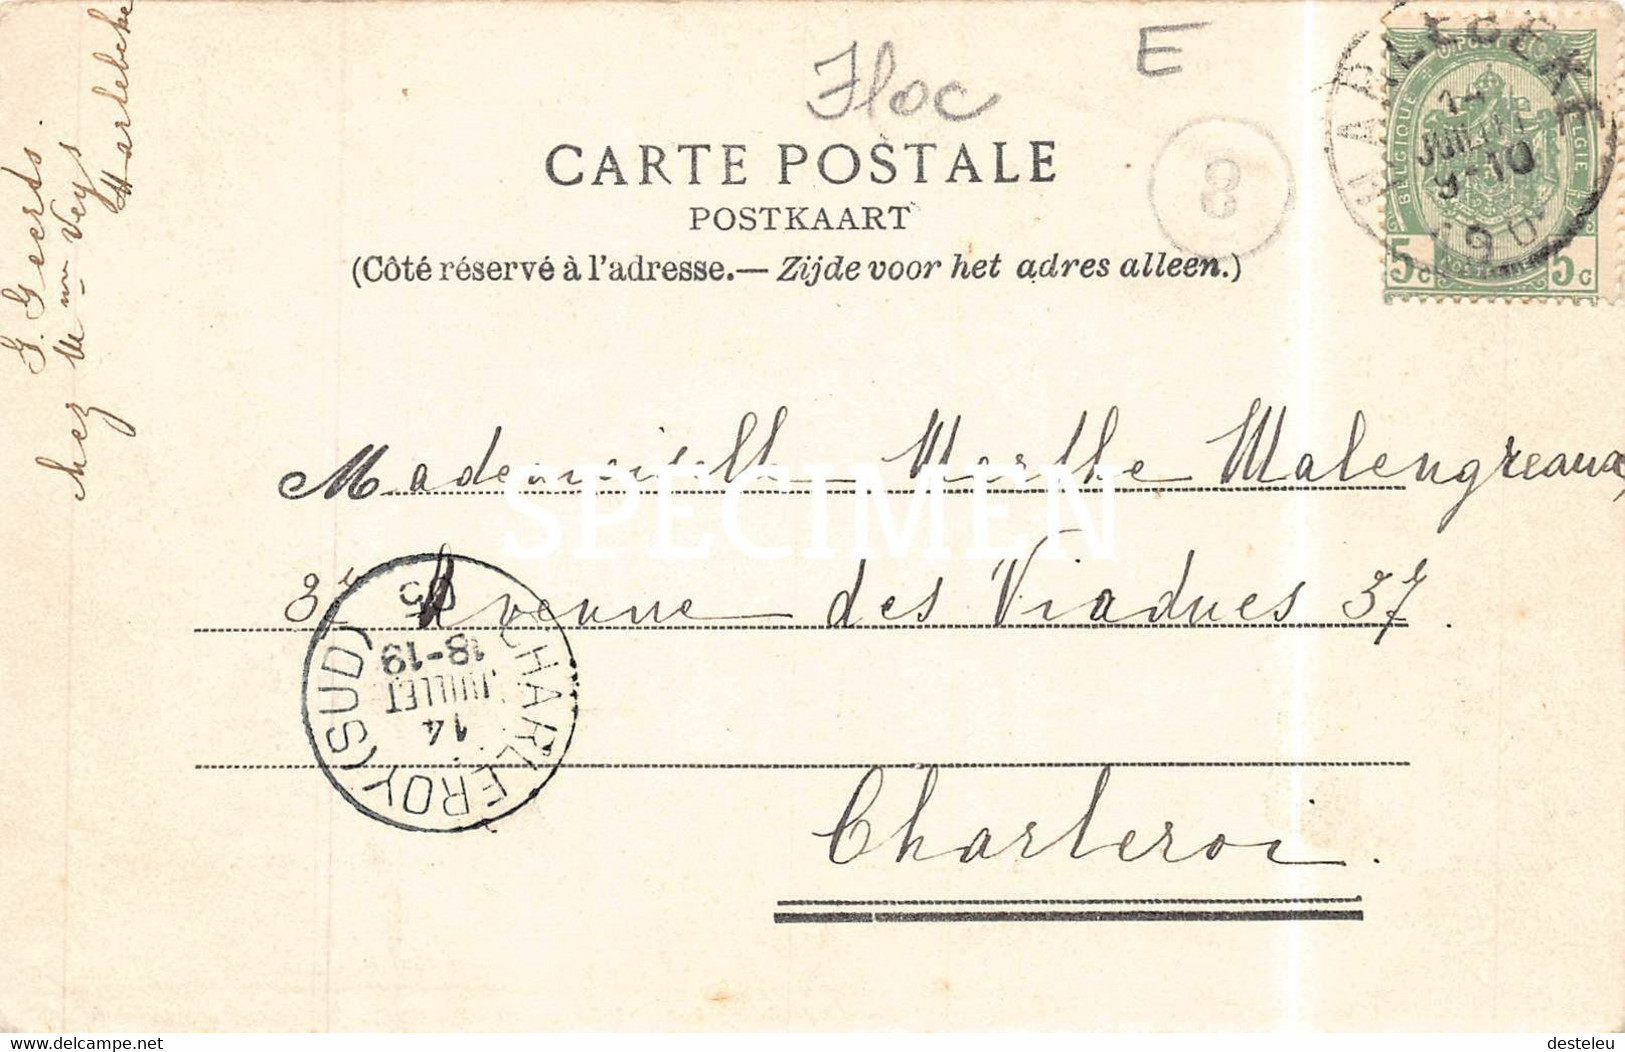 G. Geerts.
chez Mme Veys
Harlebeke
Floc
E
CARTE POSTALE
POSTKAART
(Côté réservé à l'adresse.— Zijde voor het adres alleen.)
8
HARLEBEKE
JUIL
9-10
BELGIQUE
BELGIE
5c 5c
Mademoiselle Marthe Malengreaux,
37 Avenue des Viaducs 37.
Charleroi.
CHARLEROY (SUD)
14
JUILLET
18-19
05
SPECIMEN
delcampe.net
desteleu